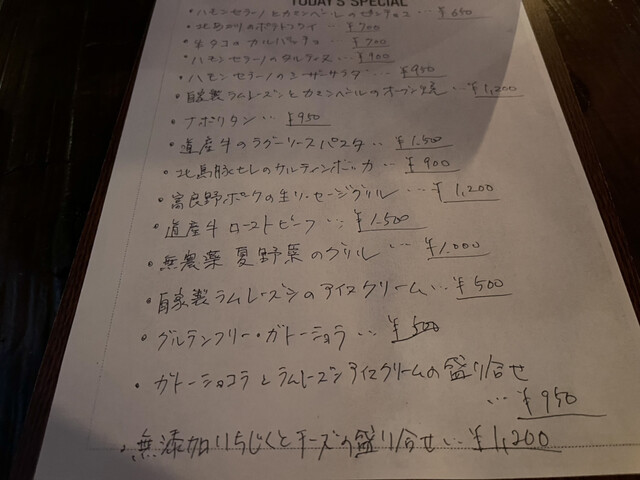 TODAY'S SPECIAL
・ハモンセラーノとカマンベールのピンチョス…¥650
・北あかりのポテトフライ…¥700
・生タコのカルパッチョ…¥700
・ハモンセラーノのタルティーヌ…¥900
・ハモンセラーノのシーザーサラダ…¥950
・自家製ラムレーズンとカマンベールのオーブン焼…¥1,200
・ナポリタン…¥950
・道産牛のラグーソースパスタ…¥1.500
・北島豚ヒレのサルティンボッカ…¥900
・富良野ポークの生ソーセージグリル…¥1,200
・道産牛ローストビーフ…¥1.500
・無農薬夏野菜のグリル…¥1.000
・自家製ラムレーズンのアイスクリーム…¥500
・グルテンフリー・ガトーショコラ…¥500
・ガトーショコラとラムレーズンアイスクリームの盛り合せ
…¥950
・無添加いちじくとチーズの盛り合せ…¥1,200